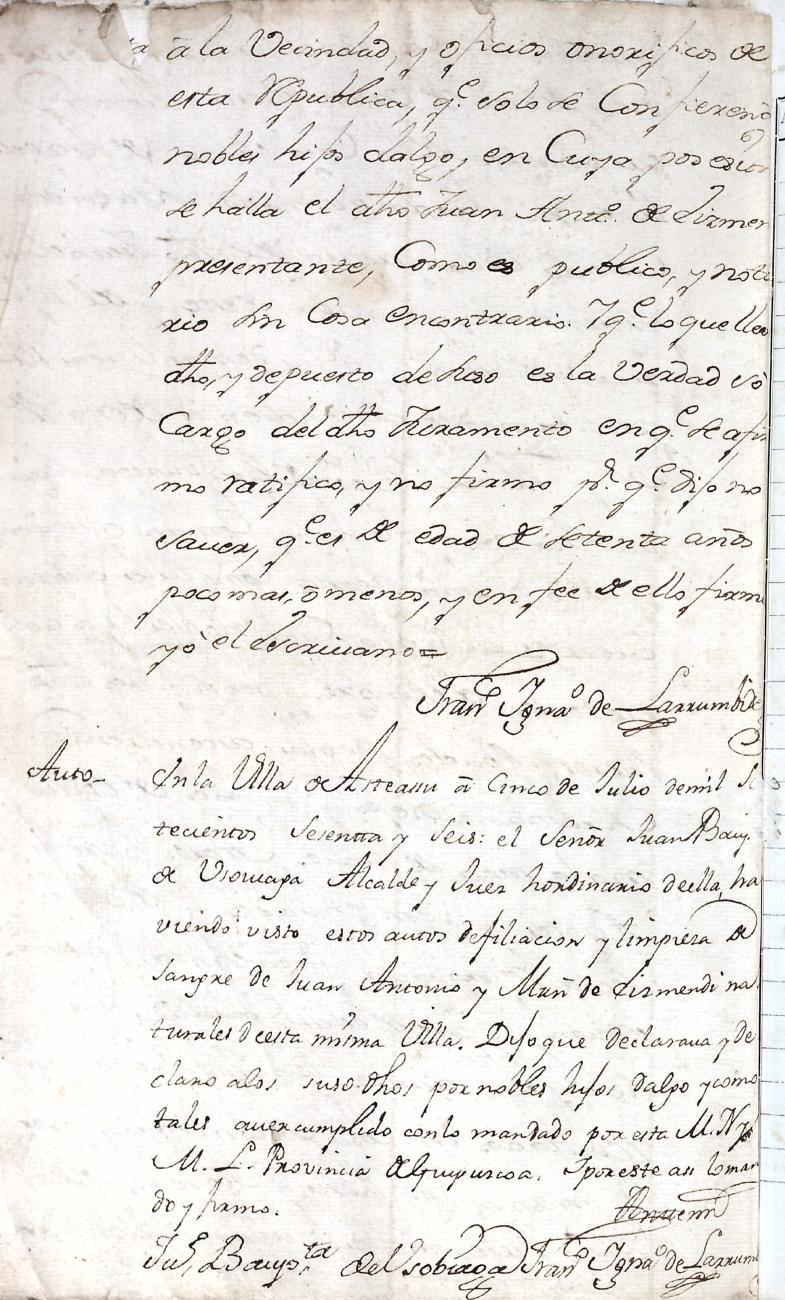 â la Vecindad, y oficios onorificos de
esta Republica, q.e solo se Confieren â
nobles hijos dalgo, en Cuya posesion
se halla el dho Juan Ant.o de Lizmen
presentante, Como es publico, y noto
rio sin Cosa encontrario. Y q.e lo que lleva
dho, y depuesto de suso es la Verdad sò
Cargo del dho Juramento en q.e se afir
mo ratifico, y no firmo p.r q.e dijo no
saver, q.e es de edad de setenta años
poco mas, ô menos, y en fee de ello firme
yò el Escrivano=
Fran.co Igna.o de Larrumbide
Auto- En la Villa de Asteasu â Cinco de Julio de mil Se
tecientos Sesentta y Seis: el Señor Juan Baup.
de Usoviaga Alcalde y Juez hordinario de ella, ha
viendo visto estos autos de filiacion y limpieza de
sangre de Juan Antonio y Mrñ de Lizmendi na
turales de esta misma Villa. Dijo que declarava y de
claro a los suso dhos por nobles hijos dalgo y como
tales aver cumplido con lo mandado por esta M. N. y
M. L. Provincia de Guipuzcoa. I por este asi lo man
do y firmo.
Antemi
Ju.n Baup.ta de Usobiaga Fran.co Igna.o de Larrum